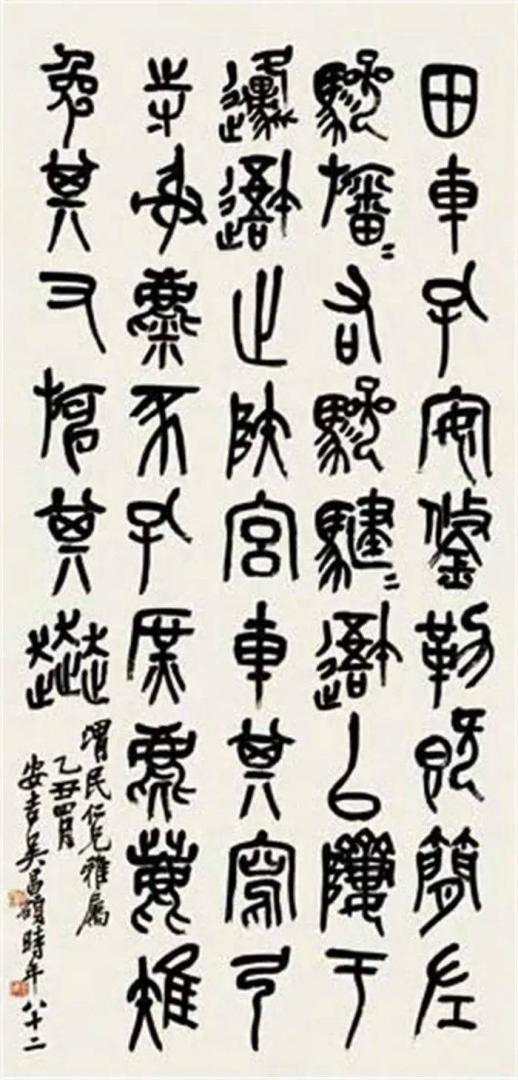 田車孔安鋚勒既簡左
驂旛=右驂騝=吾以隮于
邍吾止陝宮車其寫弓
寺射麋豕孔庶麀鹿雉
兔其又旃其奔
渭民仁兄雅屬
乙丑四月
安吉吳昌碩時年八十二